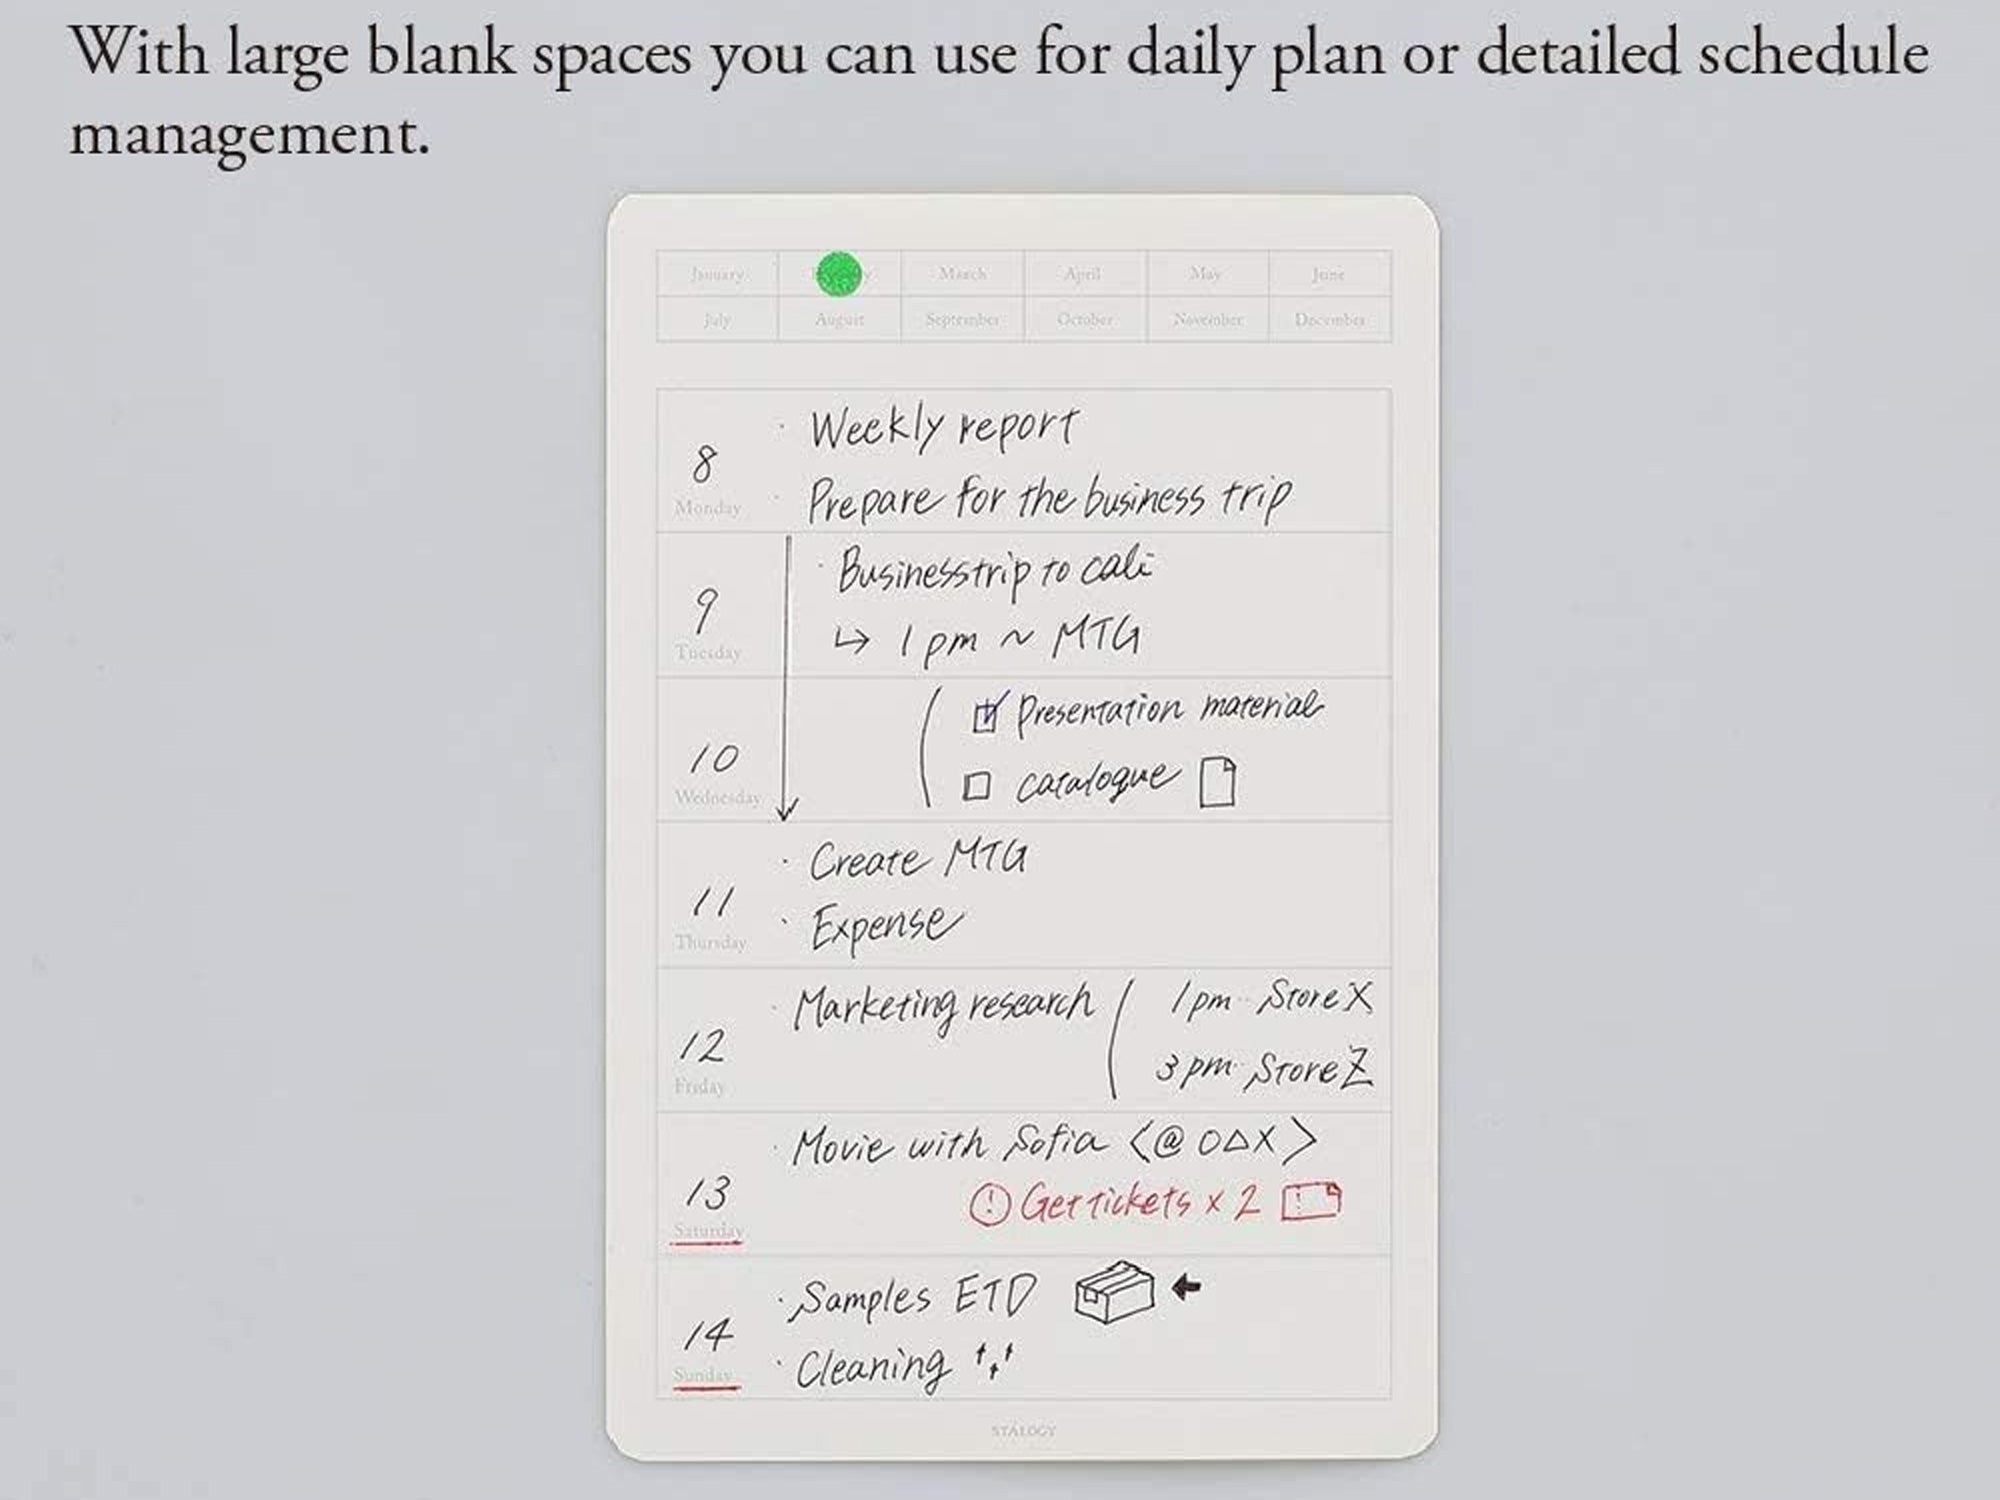 With large blank spaces you can use for daily plan or detailed schedule
management.
January March April May June
July August September October November December
8 Monday
· Weekly report
· Prepare for the business trip
9 Tuesday
· Business trip to cali
↳ 1 pm ~ MTG
10 Wednesday
☑ Presentation material
☐ catalogue
11 Thursday
· Create MTG
· Expense
12 Friday
· Marketing research
1 pm ·· Store X
3 pm ·· Store Z
13 Saturday
· Movie with Sofia <@ O△X>
! Get tickets x 2
14 Sunday
· Samples ETD
· Cleaning
STÁLOGY